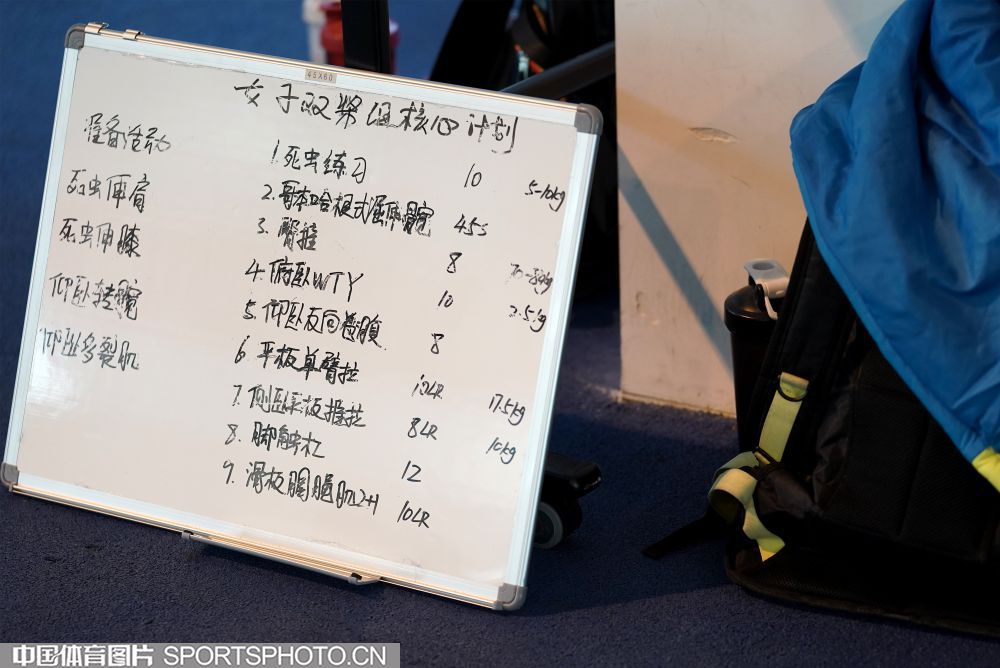 45X60
女子双桨组核心计划
准备活动
死虫伸肩
死虫伸膝
仰卧转髋
仰卧多裂肌
1. 死虫练习 10 5-10kg
2. 哥本哈根式屈伸髋 45s
3. 臀推 8 70-80kg
4. 俯卧WTY 10 2.5kg
5. 仰卧反向卷腹 8
6. 平板单臂拉 10LR 17.5kg
7. 侧卧平板推拉 8LR 10kg
8. 脚触杠 12
9. 滑板腘绳肌2+1 10LR
中国体育图片 SPORTSPHOTO.CN